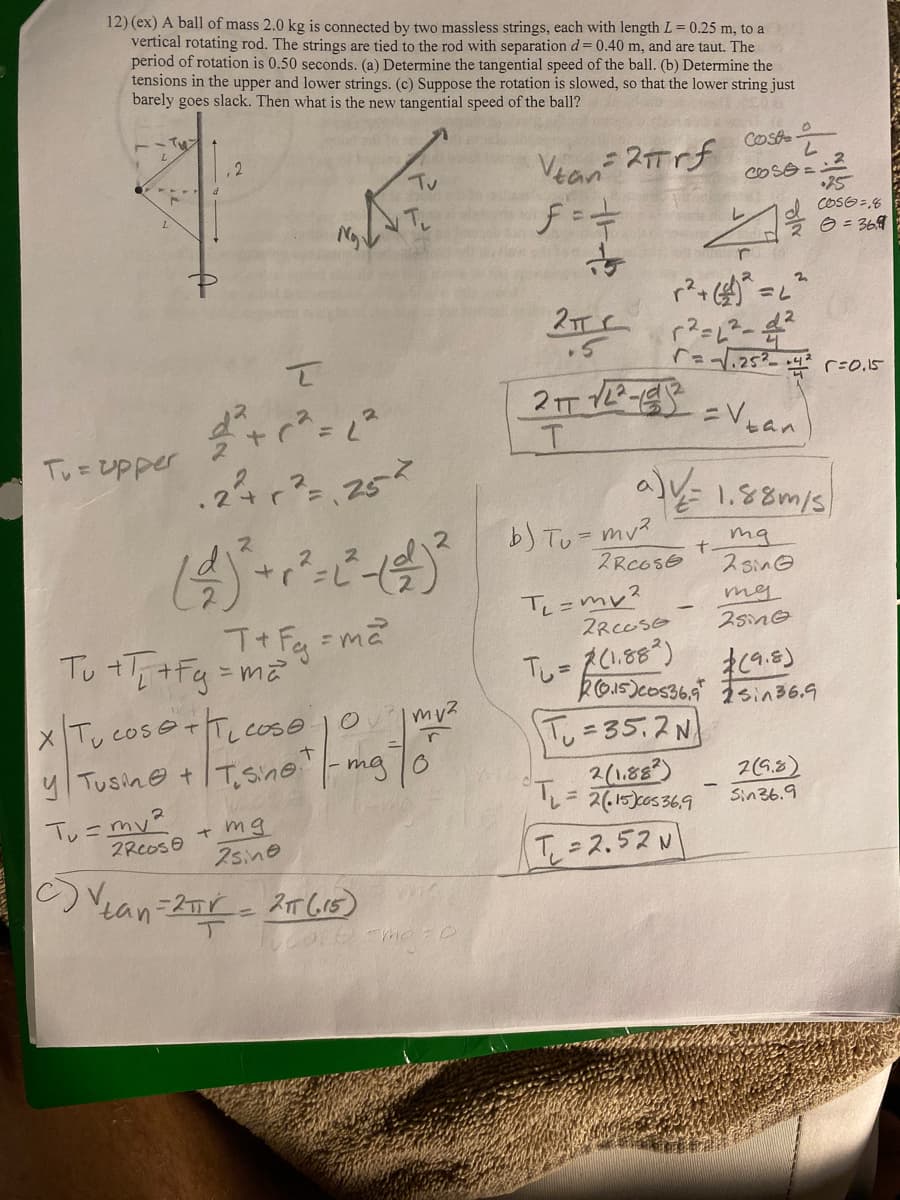 12) (ex) A ball of mass 2.0 kg is connected by two massless strings, each with length L = 0.25 m, to a
vertical rotating rod. The strings are tied to the rod with separation d = 0.40 m, and are taut. The
period of rotation is 0.50 seconds. (a) Determine the tangential speed of the ball. (b) Determine the
tensions in the upper and lower strings. (c) Suppose the rotation is slowed, so that the lower string just
barely goes slack. Then what is the new tangential speed of the ball?
L
L
d
.2
r
Tu
TL
Vtan = 2πrf
f = 1/T
1/.5
2πr/.5
cosθ = o/L
cosθ = .2/.25
cosθ = .8
θ = 36.9
L
d/2
r
r² + (d/2)² = L²
r² = L² - d²/4
r = √.25² - .4²/4 r = 0.15
2π √L²-(d/2)² / T = Vtan
a) Vt = 1.88m/s
Tu = upper
d²/2 + r² = L²
.2² + r² = .25²
(d/2)² + r² = L² - (d/2)²
T + Fg = ma
Tu + TL + Fg = ma
x | Tu cosθ + | TL cosθ | 0 = | mv²/r
y | Tu sinθ + | TL sinθ + | -mg | 0
Tu = mv²/2Rcosθ + mg/2sinθ
b) Tu = mv²/2Rcosθ + mg/2sinθ
TL = mv²/2Rcosθ - mg/2sinθ
Tu = 2(1.88²)/2(0.15)cos36.9 + 2(9.8)/2sin36.9
Tu = 35.2 N
TL = 2(1.88²)/2(.15)cos36.9 - 2(9.8)/sin36.9
TL = 2.52 N
c) Vtan = 2πr/T = 2π(.15)